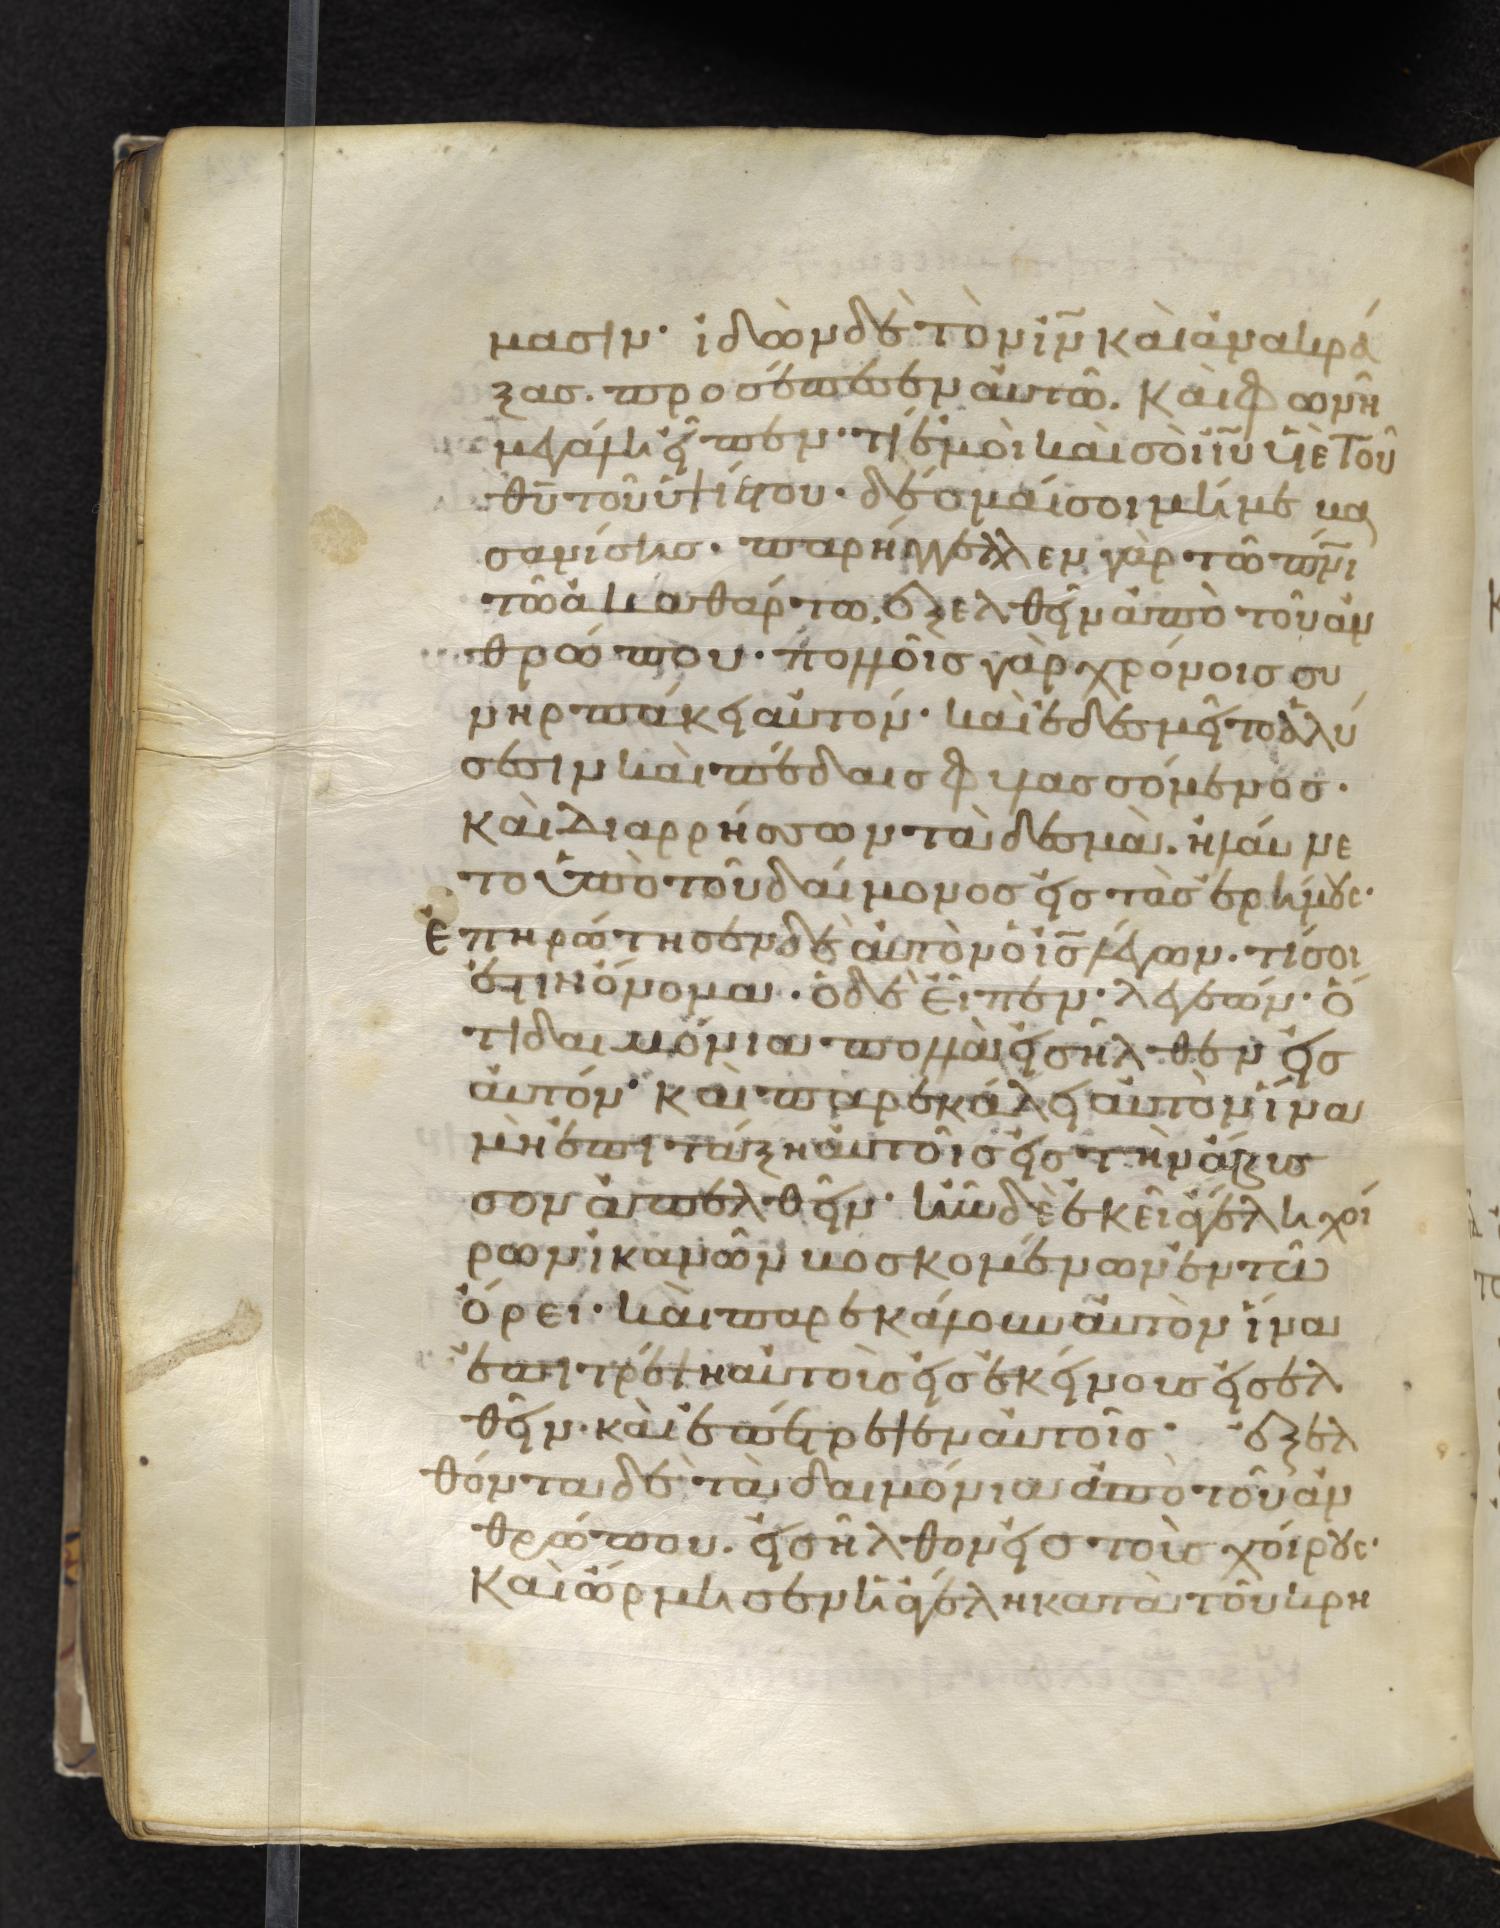 μασιν· ἰδὼν δὲ τὸν ιν̅ καὶ ἀνακρά
ξασ. προσέπεσεν αὐτῶ. Καὶ φωνῆ
μεγάλη εἶπεν· τί ἐμοὶ καὶ σοὶ ιυ̅ υἱὲ τοῦ
θυ̅ τοῦ ὑψίστου· δέομαί σοι μή με βα
σανίσησ· παρήγγελλεν γὰρ τῶ πνι̅
τῶ ἀκαθάρτω. ἐξελθεῖν ἀπὸ τοῦ ἀν
θρώπου· πολλοῖσ γὰρ χρόνοισ συ
νηρπάκει αὐτόν· καὶ ἐδεσμεῖτο ἁλύ
σεσιν καὶ πέδαισ φυλασσόμενοσ·
Καὶ διαρρήσσων τὰ δεσμὰ. ἠλαύνε
το ὑπὸ τοῦ δαίμονοσ εἰσ τὰσ ἐρήμουσ·
Ἐπηρώτησεν δὲ αὐτὸν ὁ ισ̅ λέγων· τί σοι
ἐστιν ὄνομα· ὁ δὲ εἶπεν· λεγεών· ὅ
τι δαιμόνια πολλὰ εἰσῆλθεν εἰσ
αὐτόν· Καὶ παρεκάλει αὐτὸν ἵνα
μὴ ἐπιτάξη αὐτοῖσ εἰσ τὴν ἄβυσ
σον ἀπελθεῖν· ἦν δὲ ἐκεῖ ἀγέλη χοί
ρων ἱκανῶν βοσκομένων ἐν τῶ
ὄρει· καὶ παρεκάλουν αὐτὸν ἵνα
ἐπιτρέψη αὐτοῖσ εἰσ ἐκείνουσ εἰσελ
θεῖν· καὶ ἐπέτρεψεν αὐτοῖσ· ἐξελ
θόντα δὲ τὰ δαιμόνια ἀπὸ τοῦ ἀν
θρώπου. εἰσῆλθον εἰσ τοὺσ χοίρουσ·
Καὶ ὥρμησεν ἡ ἀγέλη κατὰ τοῦ κρη